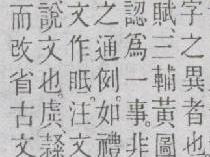 字之異者也
賦、三輔黃圖
認爲一事。非
之通例。如禮
文作眂。注文
說文也。虡隸
而改省古文